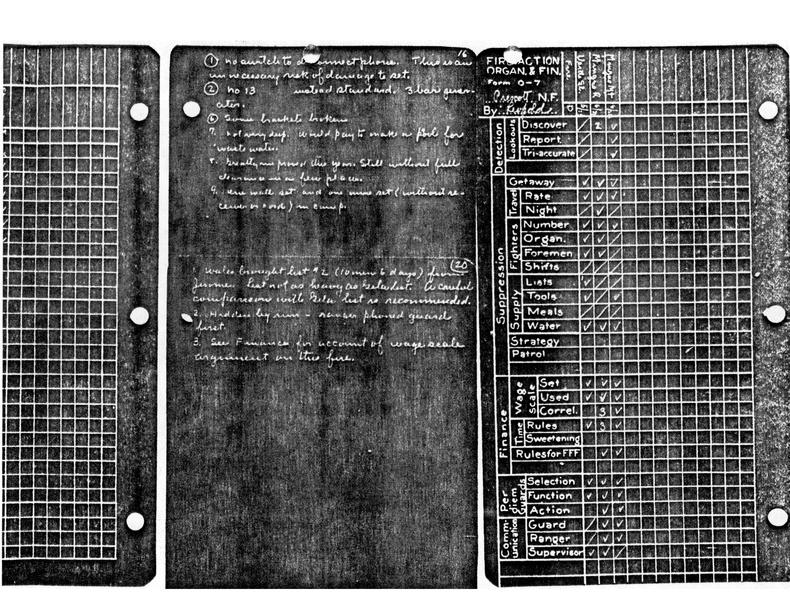 16
① no switch to disconnect phone. This is an
unnecessary risk of damage to set.
② no 13 instead standard. 3 bar gener-
ator.
⑥ Some brackets broken
7. not very deep. Would pay to make a pool for
waste water.
8. this year. Still without full
clearance in a few places.
9. One wall set and one mine set (without re-
ceiver) in camp.
20
1. Wales brought list #2 (10 men 6 days) from
Jerome list not as heavy as Gila list. A careful
comparison with Gila list is recommended.
2. by - ranger phoned guard
first.
3. See Finance for account of wage scale
argument on this fire.
FIRE ACTION
ORGAN. & FIN.
Form O-7
Prescott N.F.
By
Fire
Detection
Lookouts
Discover 2
Report
Tri-accurate
Suppression
Getaway
Travel
Rate
Night
Fighters
Number
Organ.
Foremen
Shifts
Supply
Lists
Tools
Meals
Water
Strategy
Patrol
Finance
Wage scale
Set
Used
Correl. 3
Time
Rules 3
Sweetening
Rules for FFF
Per diem Guards
Selection
Function
Action
Communication
Guard
Ranger
Supervisor